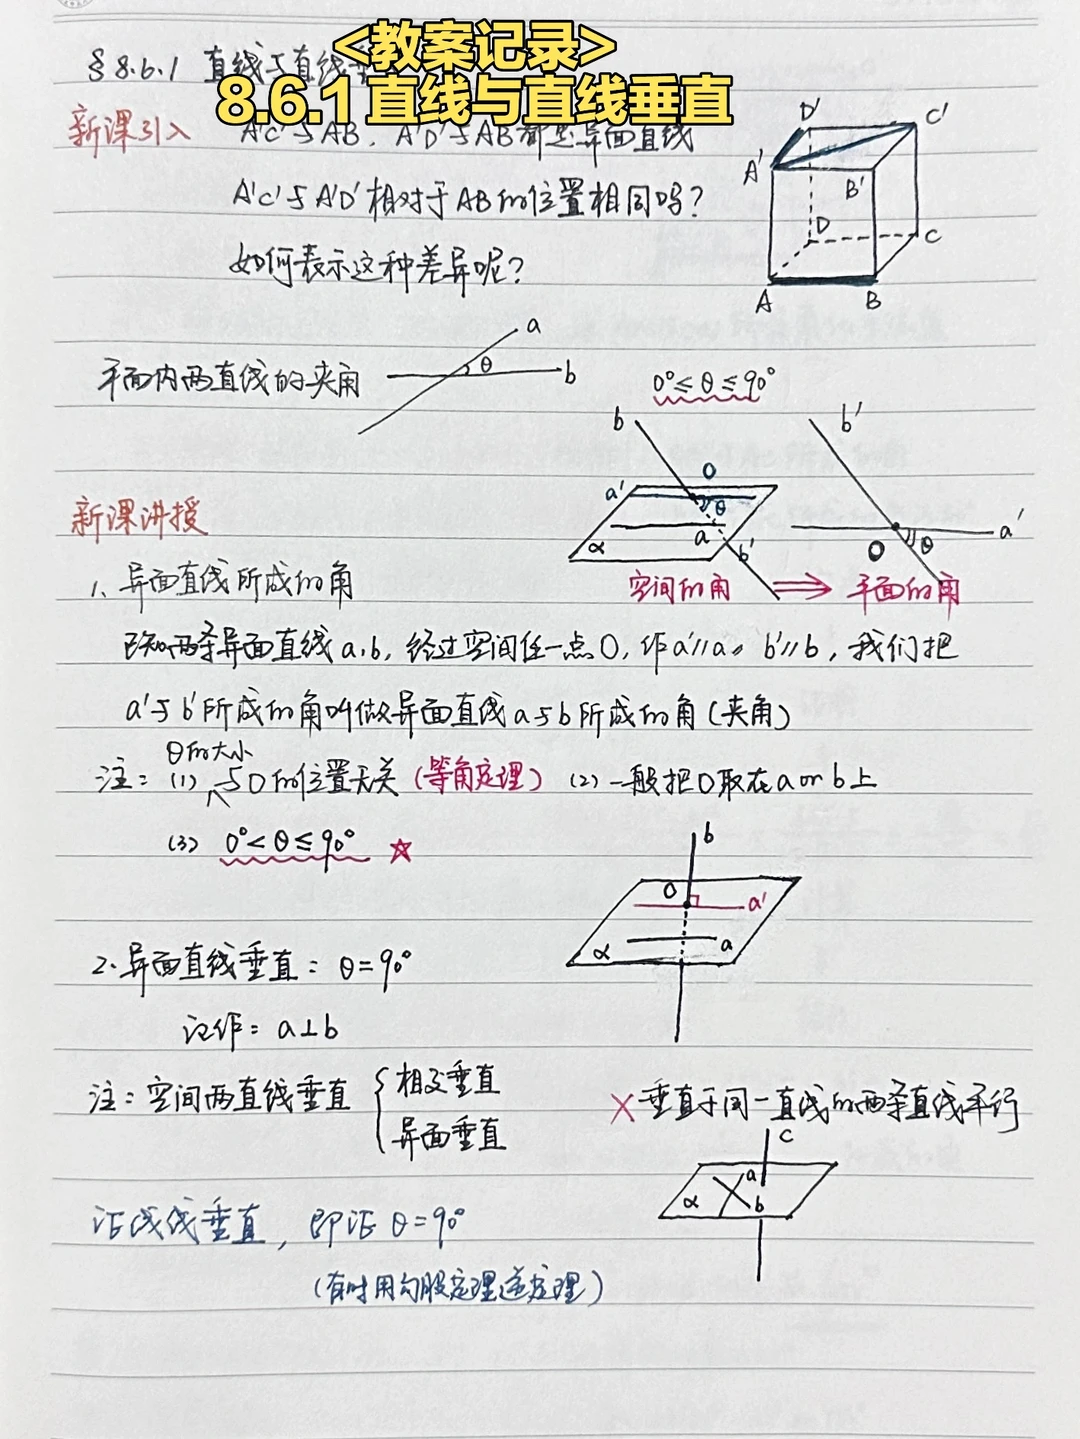 <教案记录>
8.6.1直线与直线垂直
§8.6.1 直线与直线垂
新课引入 A'C'与AB, A'D'与AB都是异面直线
A'C'与A'D'相对于AB的位置相同吗?
如何表示这种差异呢?
D' C'
A' B'
D C
A B
平面内两直线的夹角 a θ b
0°≤θ≤90°
b b'
a' O θ
α a b'
O θ a'
新课讲授
空间的角 ⇒ 平面的角
1、异面直线所成的角
已知两条异面直线a.b, 经过空间任一点O, 作a'∥a, b'∥b, 我们把
a'与b'所成的角叫做异面直线a与b所成的角(夹角)
θ的大小
注: (1) 与O的位置无关 (等角定理) (2) 一般把O取在a or b上
(3) 0°<θ≤90° ☆
b
O a'
α a
2.异面直线垂直: θ=90°
记作: a⊥b
注: 空间两直线垂直 { 相交垂直
异面垂直
×垂直于同一直线的两条直线平行
c
a
α b
证线线垂直, 即证θ=90°
(有时用勾股定理逆定理)